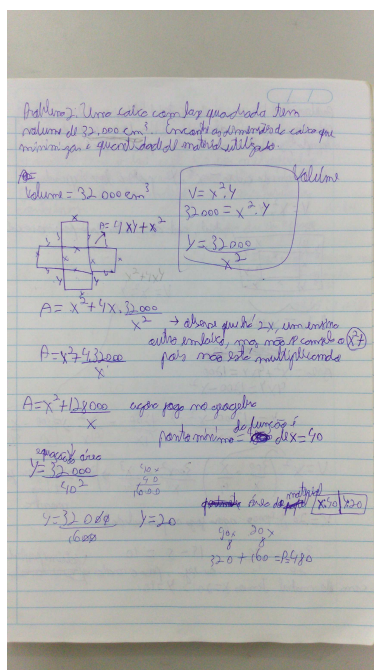 Problema 2. Uma caixa com base quadrada tem
volume de 32.000 cm³. Encontre as dimensões da caixa que
minimizam a quantidade de material utilizado.
Volume = 32 000 cm³
A = 4xy + x²
Volume
V = x².y
32000 = x².y
y = 32000
x²
A = x² + 4x . 32000
x²
→ que há 2x, um em cima
outro embaixo, mas não se cancela o x²+
pois não está multiplicando
A = x² + 4.32000
x
A = x² + 128000
x
agora jogo no geogebra
ponto mínimo = da função é de x = 40
equação área
y = 32 000
40²
40x
40
1600
y = 32 000
1600
y = 20
área do material x=40 y=20
320 + 160 =